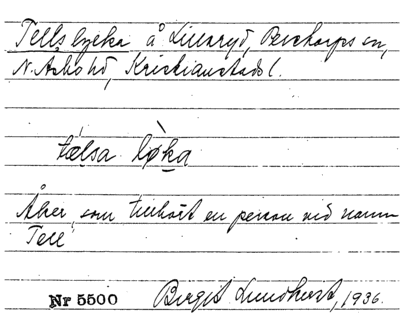 Tells lycka å Lillaryd, Perstorps sn,
N. Åsbo hd, Kristianstads l.
tælsa løka
Åker, som tillhört en person vid namn
Tell
Nr 5500 Birgit Lundkvist, 1936.